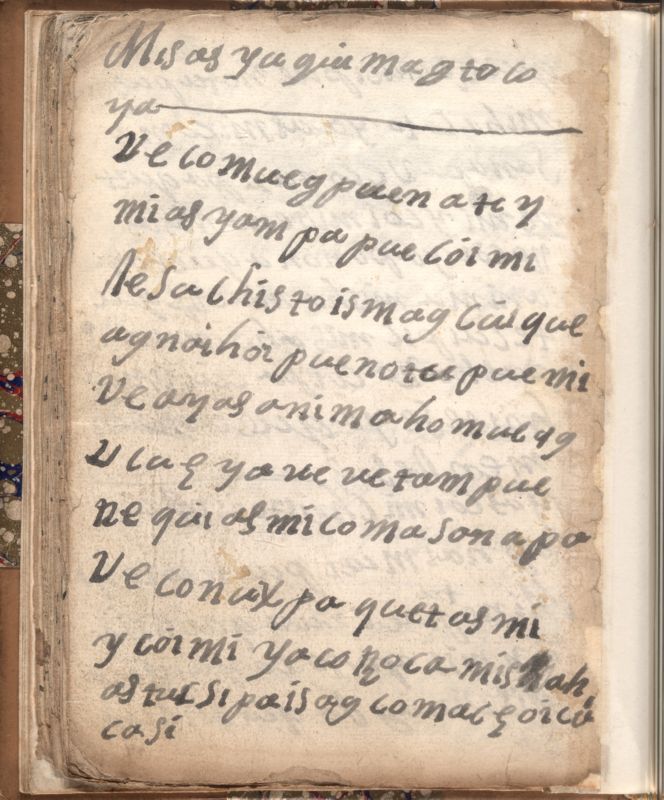 Misas ya gia mag to co
ya
Ve comuegpuen a te y
mi as yam pa pue cói mi
Ie Su chisto is mag cui que
ag noi hoi pue no te pue mi
Ve ay as anima ho mue ag
ya ve ve tam pue
ne qui as mi co ma so na pa
Ve con ux pa quet as mi
y cói mi ya co no ca mis
as tuc si pa is ag co mac
ca si